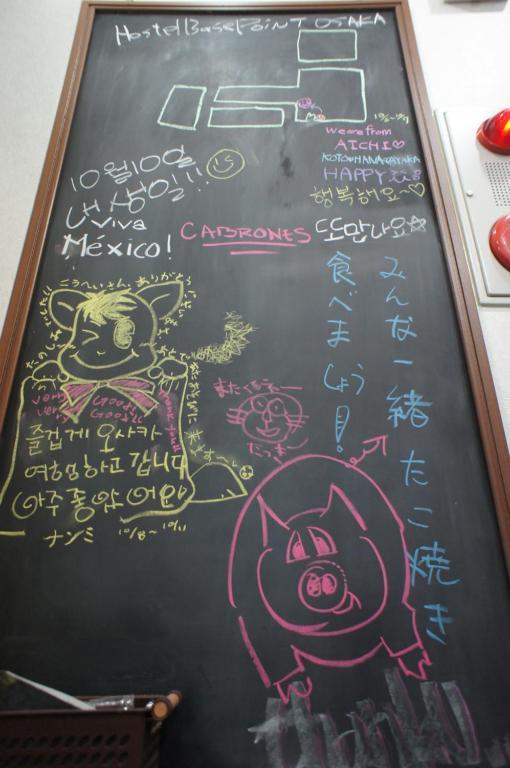 Hostel BasePoint OSAKA
10/8~10/11
we are from
AICHI♡
HAPPY
행복해요~♡
10월10일
내 생일!!!
Viva
México!
CABRONES
또만나요☆
みんな一緒たこ焼き
食べましょう!
こうへいさん、ありがとう
very Good!!
very Good!!
즐겁게 오사카
여행하고 갑니다
아주 좋았어요
ナンミ 10/8~10/11
またくるぞー
だっま